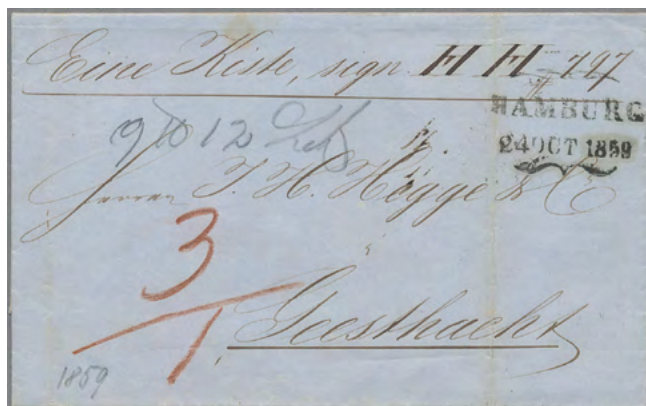 Eine Kiste, sign. H H 797
HAMBURG
24 OCT 1859
9 12
Herren J. H. Högge & C
3
1
Geesthacht
1859